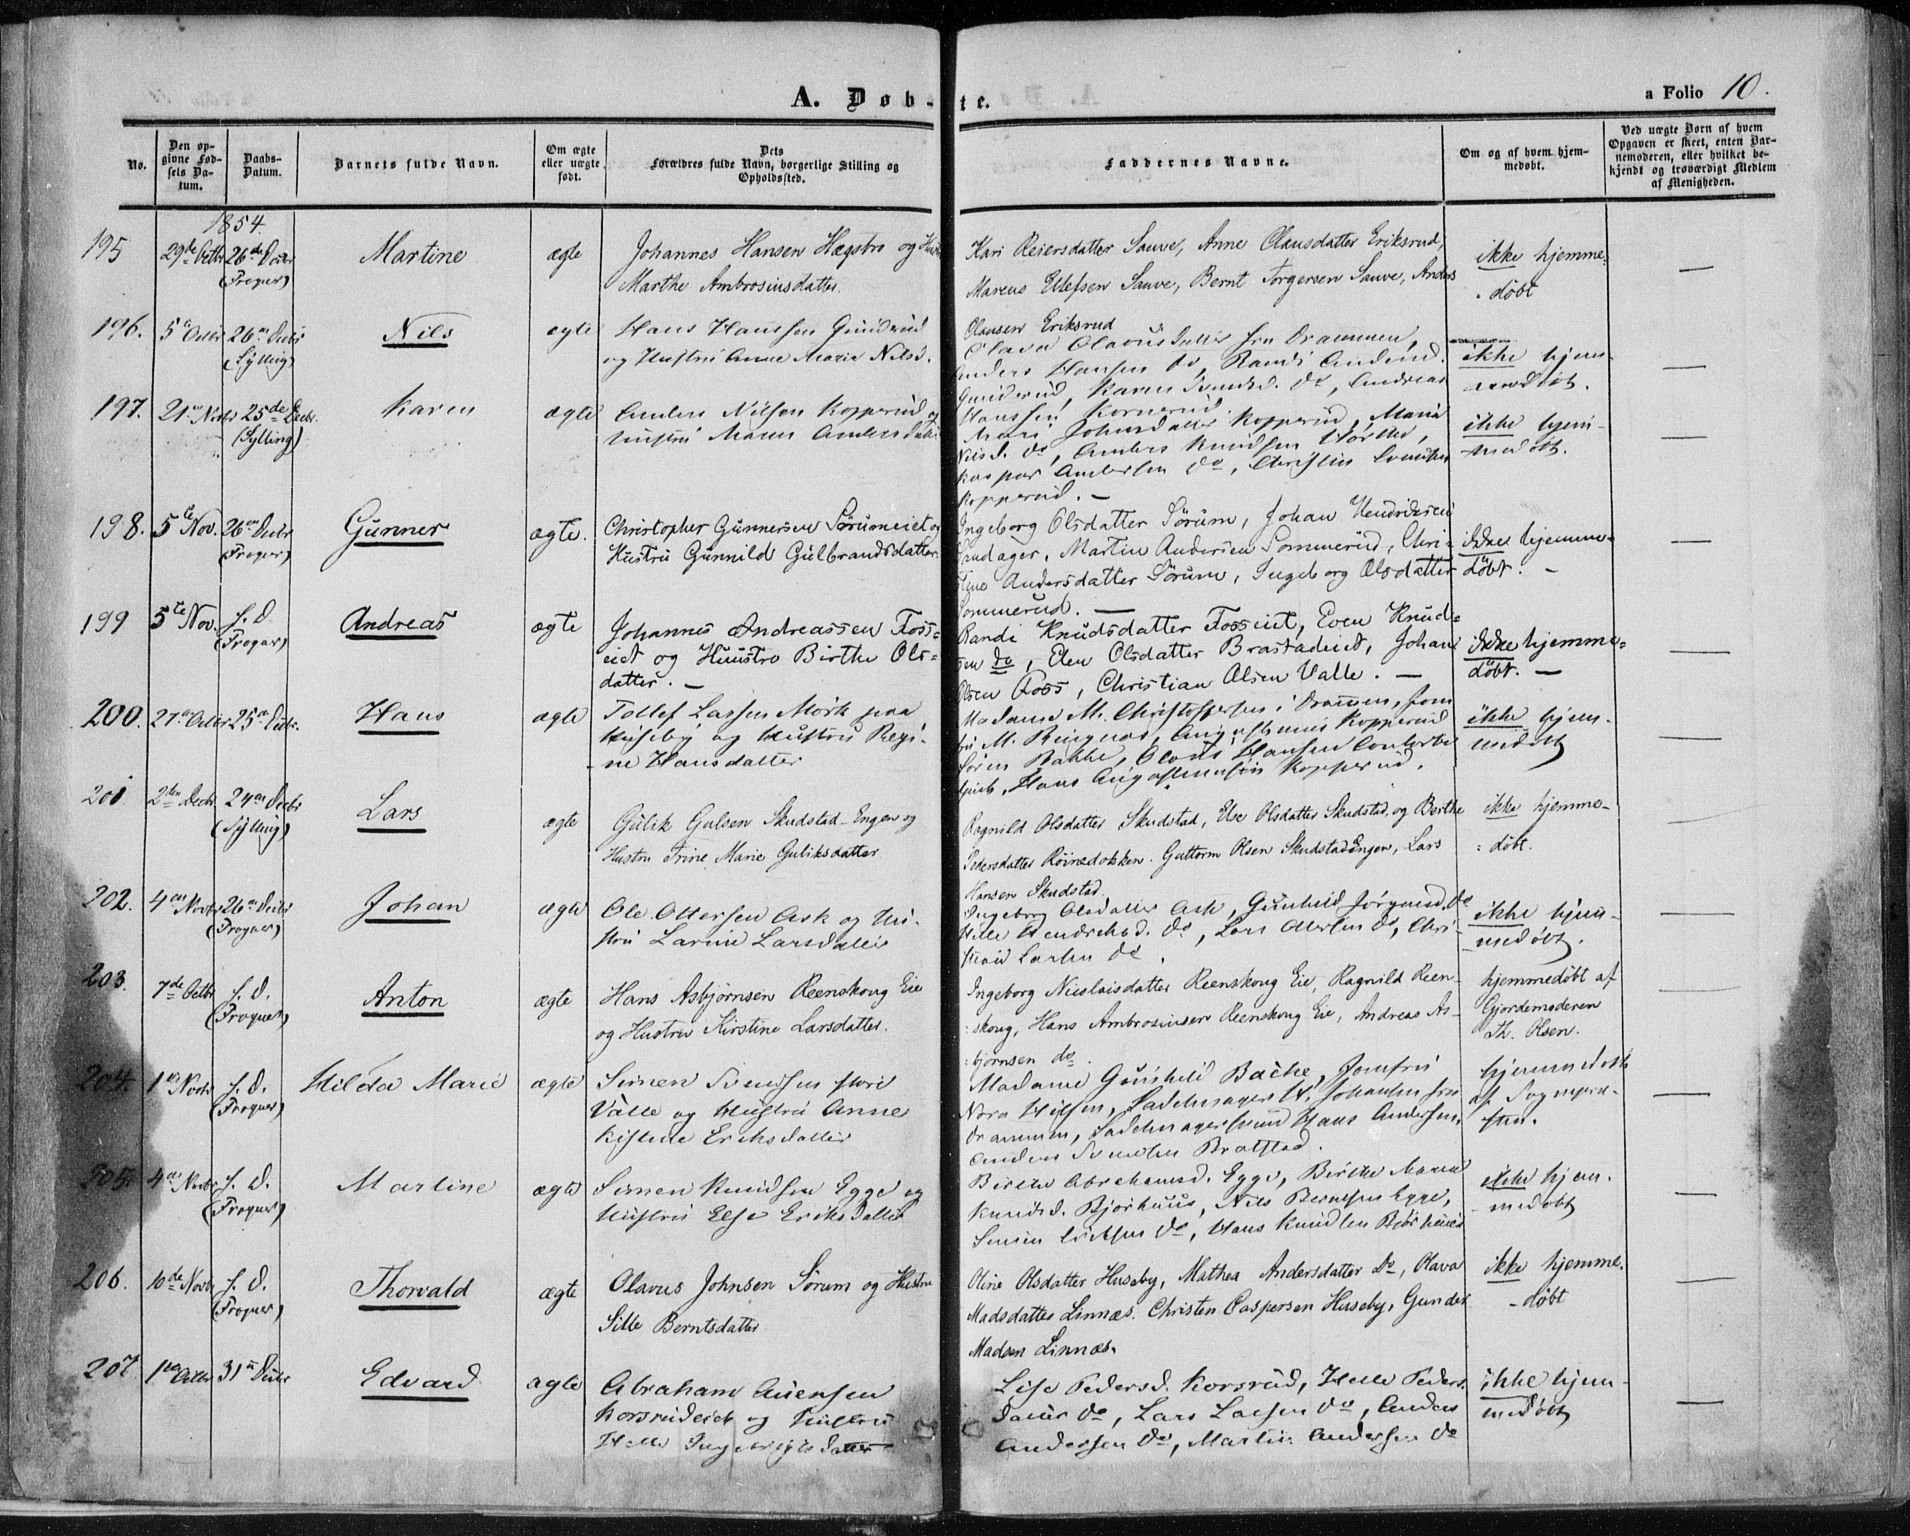 A. Døb-te.
a Folio 10.
No.
Den op-givne Fød-sels Da-tum.
Daabs-Datum.
Barnets fulde Navn.
Om ægte eller uægte født.
Dets Forældres fulde Navn, borgerlige Stilling og Opholdssted.
Faddernes Navne.
Om og af hvem hjem-medøbt.
Ved uægte Børn af hvem Opgaven er skeet, enten Bar-nemoderen, eller hvilket be-kjendt og troværdigt Medlem af Menigheden.
1854.
195 29de Octbr 26de Decbr (Frogner) Martine ægte
Johannes Hansen Hægstro og Hustr
Marthe Ambrosiusdatter.
Kari Reiersdatter Sauve, Anne Olausdatter Eriksrud,
Marcus Ellefsen Sauve, Bernt Torgersen Sauve, Anders
Olausen Eriksrud
ikke hjemme-
døbt
196. 5te Octbr 26de Decbr (Sylling) Nils ægte
Hans Hanssen
og Hustru Anne Marie Nilsd.
Olava Olavusdatter fra Drammen,
Anders Hansen do, Randi
Karen do, Andreas
Hanssen
ikke hjem-
medøbt.
197. 21de Novbr 25de Decbr. (Sylling) Karen ægte
Anders Nilsen Kopperud og
Hustru Maren Andersdatter
Mari Johnsdatter Kopperud, Maria
Nilsd. do, Anders Knudsen
Kaspar Andersen do, Christen
Kopperud. —
ikke hjem-
medøbt.
198. 5te Nov. 26de Decbr (Frogner) Gunner ægte.
Christopher Gunnersen Sørumeiet og
Hustru Gunnild Gulbrandsdatter.
Ingeborg Olsdatter Sørum, Johan Hendriksen
Sandager, Martin Andersen Sommerud, Chri-
stine Andersdatter Sørum, Ingeborg Olsdatter
Sommerud. —
ikke hjemme-
døbt. —
199 5te Nov. s. D. (Frogner) Andreas ægte
Johannes Andreassen Foss-
eiet og Huustro Birthe Ols-
datter. —
Randi Knudsdatter Fosseiet, Even Knud-
sen do, Elen Olsdatter Brastadeiet, Johan
Olsen Foss, Christian Olsen Valle. —
ikke hjemme-
døbt. —
200. 27de Octbr 25de Decbr. Hans ægte
Tollef Larsen Mørk paa
Huseby og Hustru Regi-
ne Hansdatter
Madame M. Christophersen i Drammen, Jom-
fru M. Ringnæs, Kopperud
Søren Bakke, Hansen
Hans Kopperud.
ikke hjem-
medøbt
201. 2den Decbr 24de Decbr (Sylling) Lars ægte
Gulik Gulsen Skudstad-Engen og
Hustru Trine Marie Guliksdatter
Ragnild Olsdatter Skudstad, Else Olsdatter Skudstad, og Berthe
Pedersdatter Guttorm Olsen Skudstadengen, Lars
Hansen Skudstad.
ikke hjemme-
døbt.
202. 4de Novbr 26de Decbr (Frogner) Johan ægte
Ole Ottersen Ask og Hu-
stru Larine Larsdatter
Ingeborg Olsdatter Ask, Gunhild Jørgensd. do
Helle do, Lars Ottersen do, Chri-
stian Larsen do.
ikke hjem-
medøbt.
203. 7de Octbr s. D. (Frogner) Anton ægte
Hans Asbjørnsen Reenskoug Eie
og Hustru Kirstine Larsdatter.
Ingeborg Nicolaisdatter Reenskoug Eie, Ragnild Reen-
skoug, Hans Ambrosiusen Reenskoug Eie, Andreas As-
bjørnsen do.
hjemmedøbt af
Gjordemoderen
Th. Olsen.
204. 1de Novbr s. D. (Frogner) Hilda Marie ægte
Simen Svendsen store
Valle og Hustru Anne
Kistine Eriksdatter
Madame Gunhild Bache, Jomfru
Nora Sadelmager H. Johansen fra
Drammen, Sadelmagersvend Hans Andersen,
Anders Svendsen Bratstad.
hjemmedøbt
af Sognepræ-
sten.
205. 4de Novbr s. D. (Frogner) Martine ægte
Simen Knudsen Egge og
Hustru Else Eriksdatter
Birthe Abrahamsd. Egge, Birthe Maria
Knudsd. Bjørhuus, Nils Berntsen Egge,
Simen Eriksen do, Hans Knudsen Bjørhuus
ikke hjem-
medøbt
206. 10de Novbr s. D. (Frogner) Thorvald ægte
Olavus Johnsen Sørum og Hustru
Sille Berntsdatter
Oline Olsdatter Huseby, Mathea Andersdatter Do, Olava
Madsdatter Linnæs. Christen Caspersen Huseby, Gunder
Madsen Linnæs.
ikke hjemme-
døbt
207 1de Octbr 31te Decbr Edvard ægte
Abraham Auensen
Korsrudeiet og Hustru
Helle
Lise Pedersd. Korsrud, Helle Peders-
datter Do, Lars Larsen Do, Anders
Andersen Do, Martin Andersen Do
ikke hjem-
medøbt